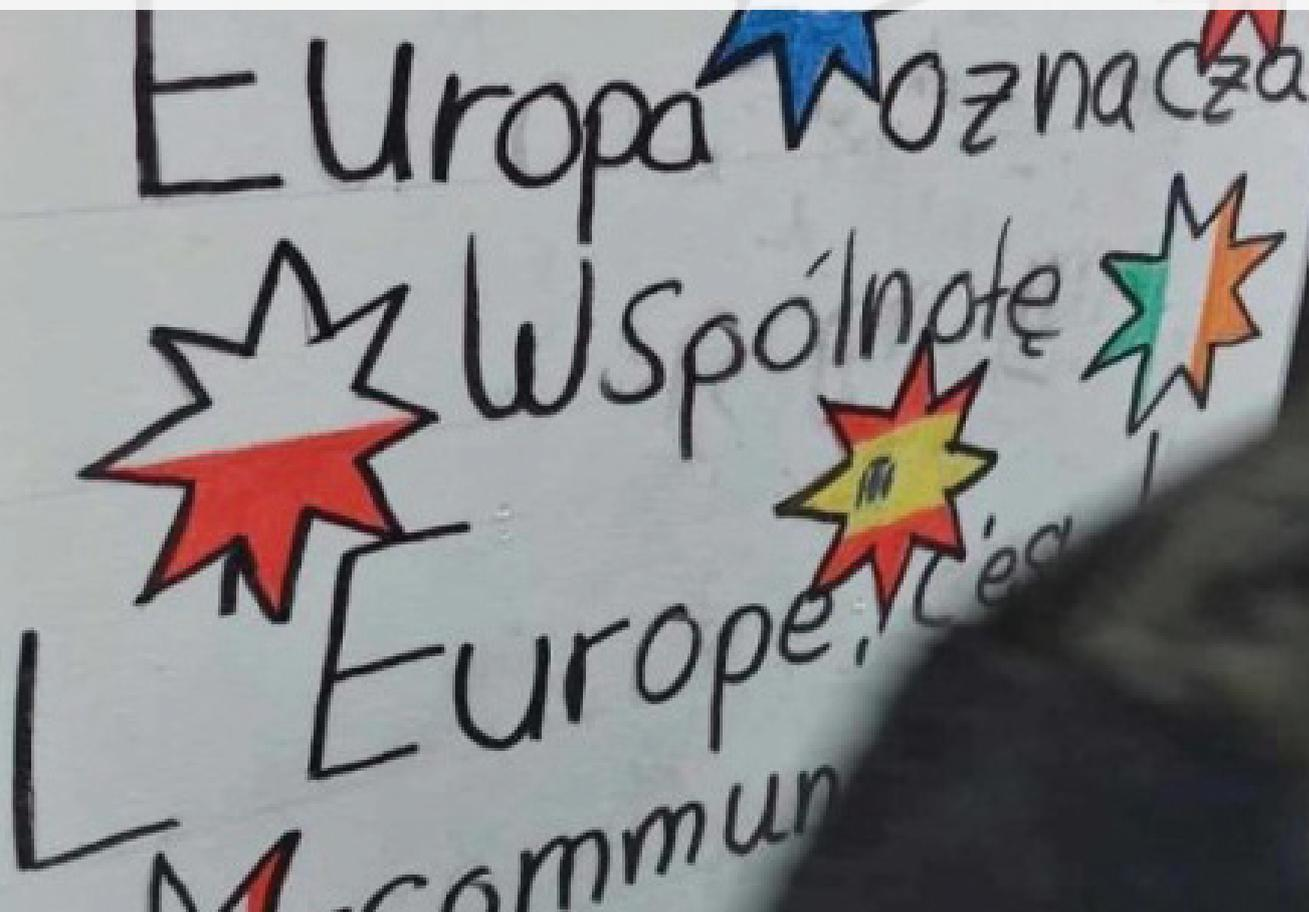 Europa oznacza
Wspólnotę
L'Europe, c'es
commun